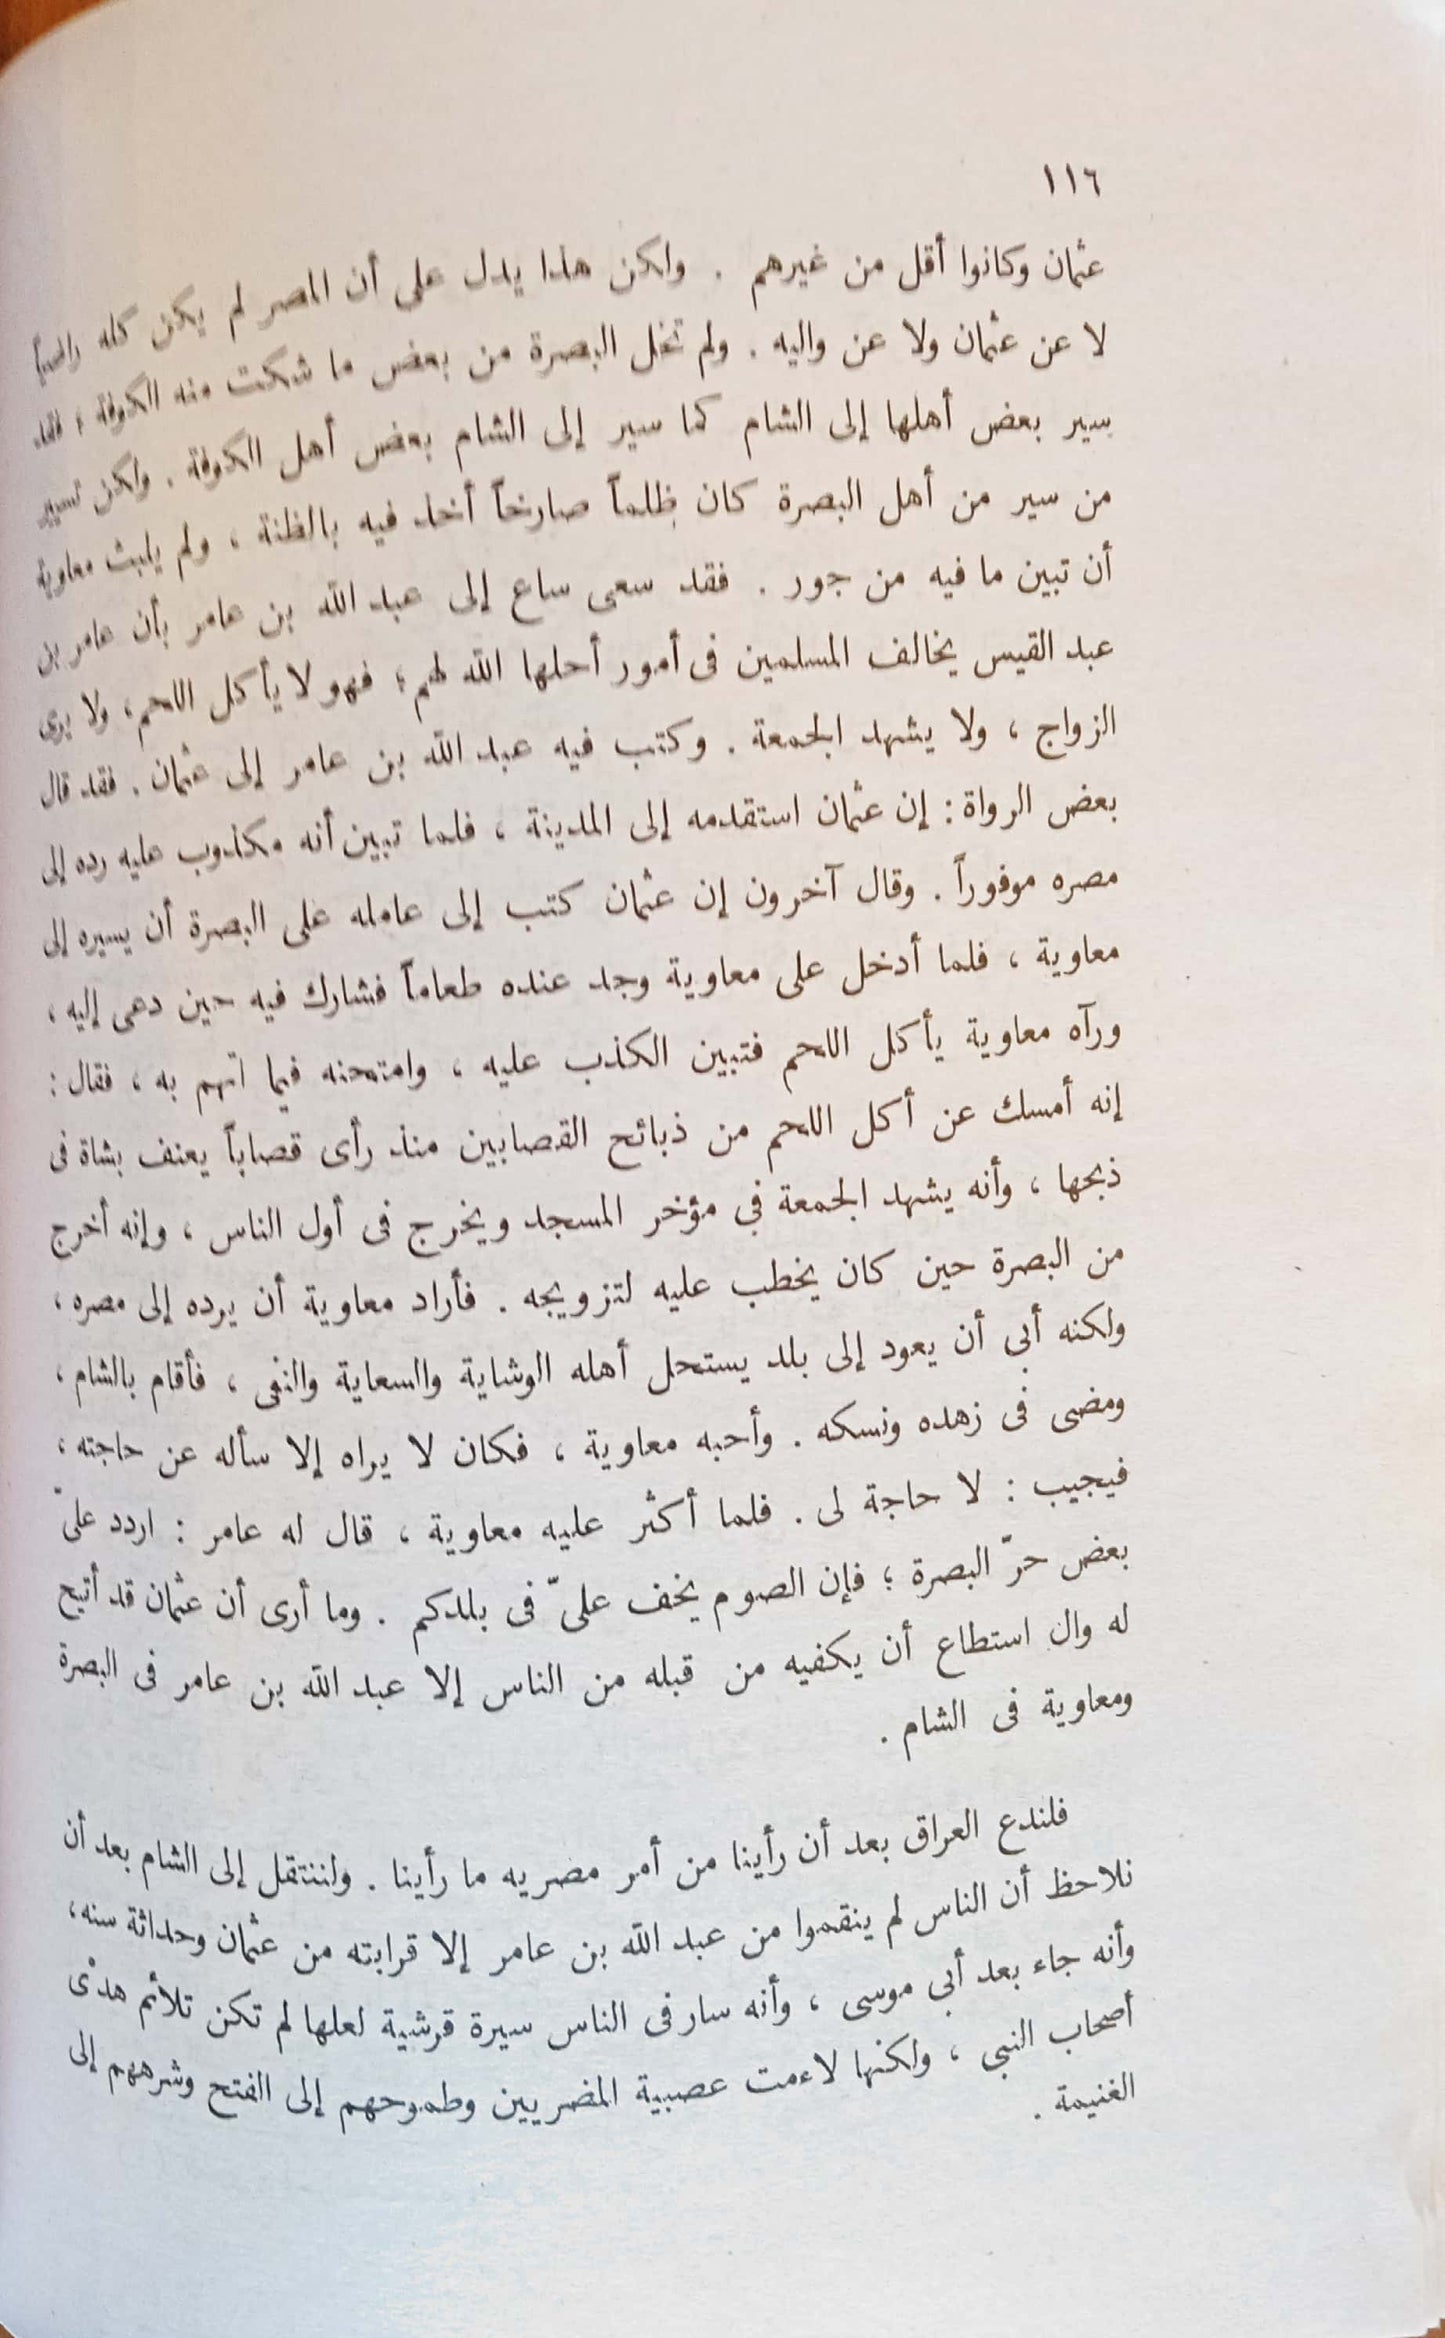 ١١٦
عثمان وكانوا أقل من غيرهم . ولكن هذا يدل على أن المصر لم يكن كله راضياً
لا عن عثمان ولا عن واليه . ولم تخل البصرة من بعض ما شكت منه الكوفة ؛ فقد
سير بعض أهلها إلى الشام كما سير إلى الشام بعض أهل الكوفة . ولكن تسيير
من سير من أهل البصرة كان ظلماً صارخاً أخذ فيه بالظنة ، ولم يلبث معاوية
أن تبين ما فيه من جور . فقد سعى ساع إلى عبد الله بن عامر بأن عامر بن
عبد القيس يخالف المسلمين فى أمور أحلها الله لهم ؛ فهو لا يأكل اللحم ، ولا يرى
الزواج ، ولا يشهد الجمعة . وكتب فيه عبد الله بن عامر إلى عثمان . فقد قال
بعض الرواة : إن عثمان استقدمه إلى المدينة ، فلما تبين أنه مكذوب عليه رده إلى
مصره موفوراً . وقال آخرون إن عثمان كتب إلى عامله على البصرة أن يسيره إلى
معاوية ، فلما أدخل على معاوية وجد عنده طعاماً فشارك فيه حين دعى إليه ،
ورآه معاوية يأكل اللحم فتبين الكذب عليه ، وامتحنه فيما اتهم به ، فقال :
إنه أمسك عن أكل اللحم من ذبائح القصابين منذ رأى قصاباً يعنف بشاة فى
ذبحها ، وأنه يشهد الجمعة في مؤخر المسجد ويخرج فى أول الناس ، وإنه أخرج
من البصرة حين كان يخطب عليه لتزويجه . فأراد معاوية أن يرده إلى مصره ،
ولكنه أبى أن يعود إلى بلد يستحل أهله الوشاية والسعاية والنفى ، فأقام بالشام ،
ومضى فى زهده ونسكه . وأحبه معاوية ، فكان لا يراه إلا سأله عن حاجته ،
فيجيب : لا حاجة لى . فلما أكثر عليه معاوية ، قال له عامر : اردد علىّ
بعض حرّ البصرة ؛ فإن الصوم يخف علىّ فى بلدكم . وما أرى أن عثمان قد أتيح
له وال استطاع أن يكفيه من قبله من الناس إلا عبد الله بن عامر فى البصرة
ومعاوية فى الشام .
فلندع العراق بعد أن رأينا من أمر مصريه ما رأينا . ولننتقل إلى الشام بعد أن
نلاحظ أن الناس لم ينقموا من عبد الله بن عامر إلا قرابته من عثمان وحداثة سنه ،
وأنه جاء بعد أبي موسى ، وأنه سار فى الناس سيرة قرشية لعلها لم تكن تلائم هدْى
أصحاب النبي ، ولكنها لاءمت عصبية المضريين وطموحهم إلى الفتح وشرههم إلى
الغنيمة .